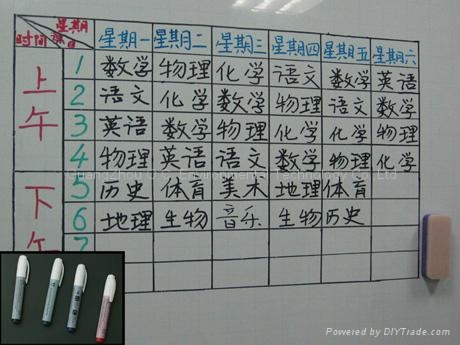 星期
时间 目
星期一 星期二 星期三 星期四 星期五 星期六
上午
1 数学 物理 化学 语文 数学 英语
2 语文 化学 数学 物理 语文 数学
3 英语 数学 物理 化学 化学 物理
4 物理 英语 语文 数学 物理 化学
Guangzhou O.C. Environmental Technology Co., Ltd
下午
5 历史 体育 美术 地理 体育
6 地理 生物 音乐 生物 历史
7
Powered by DIYTrade.com